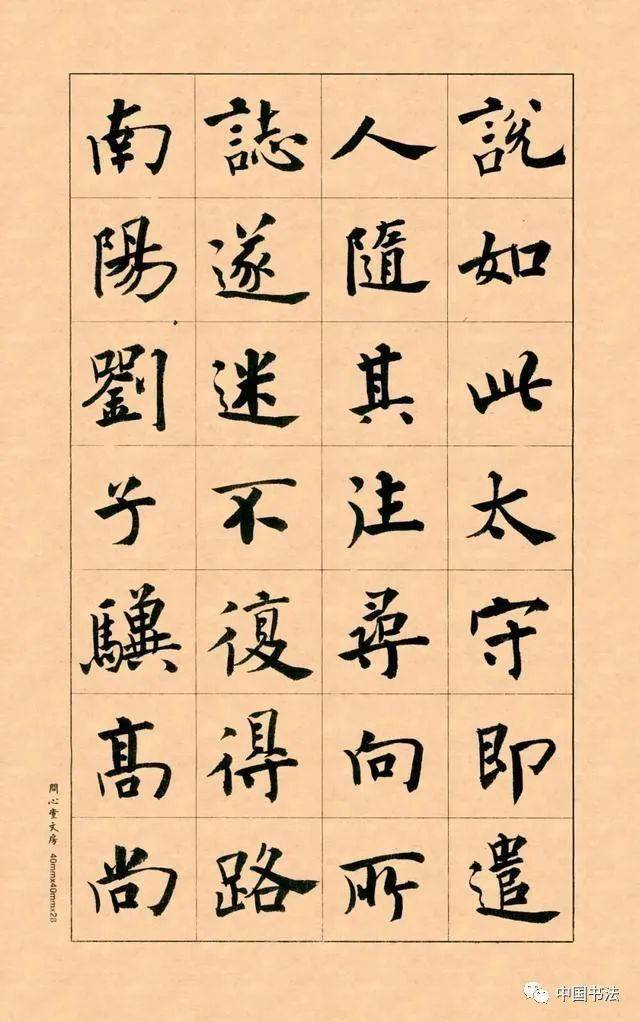 說如此太守即遣
人隨其往尋向所
誌遂迷不復得路
南陽劉子驥高尚
問心堂文房 40mmx40mmx28
中国书法